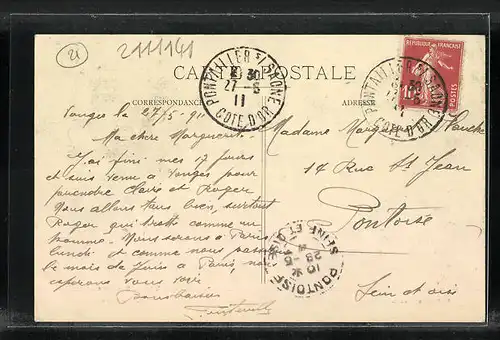 21
2111141
CARTE POSTALE
CORRESPONDANCE
ADRESSE
PONTAILLER S/ SAONE
27 -5
11
COTE D'OR
REPUBLIQUE FRANÇAISE
10
POSTES
Vonges le 27/5 - 911
Ma chère Marguerite
J'ai fini mes 17 jours
et suis venu à Vonges pour
prendre Claire et Roger
Nous allons tous bien, surtout
Roger qui trotte comme un
homme. Nous serons à Paris
lundi et comme nous passons
le mois de Juin à Paris, nous
espérons vous voir
Bons baisers
Madame Marguerite
14 Rue St Jean
Pontoise
Seine et Oise
PONTOISE
SEINE ET OISE
28 -5